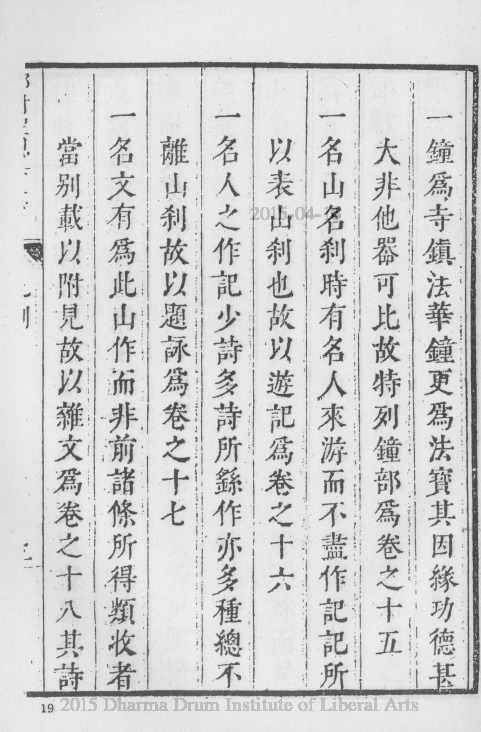 一鐘爲寺鎮法華鐘更爲法寶其因緣功德甚
大非他器可比故特列鐘部爲卷之十五
一名山名刹時有名人來游而不盡作記記所
以表山刹也故以遊記爲卷之十六
一名人之作記少詩多詩所繇作亦多種總不
離山刹故以題詠爲卷之十七
一名文有爲此山作而非前諸條所得類收者
當别載以附見故以雜文爲卷之十八其詩
2015-04-
19 2015 Dharma Drum Institute of Liberal Arts